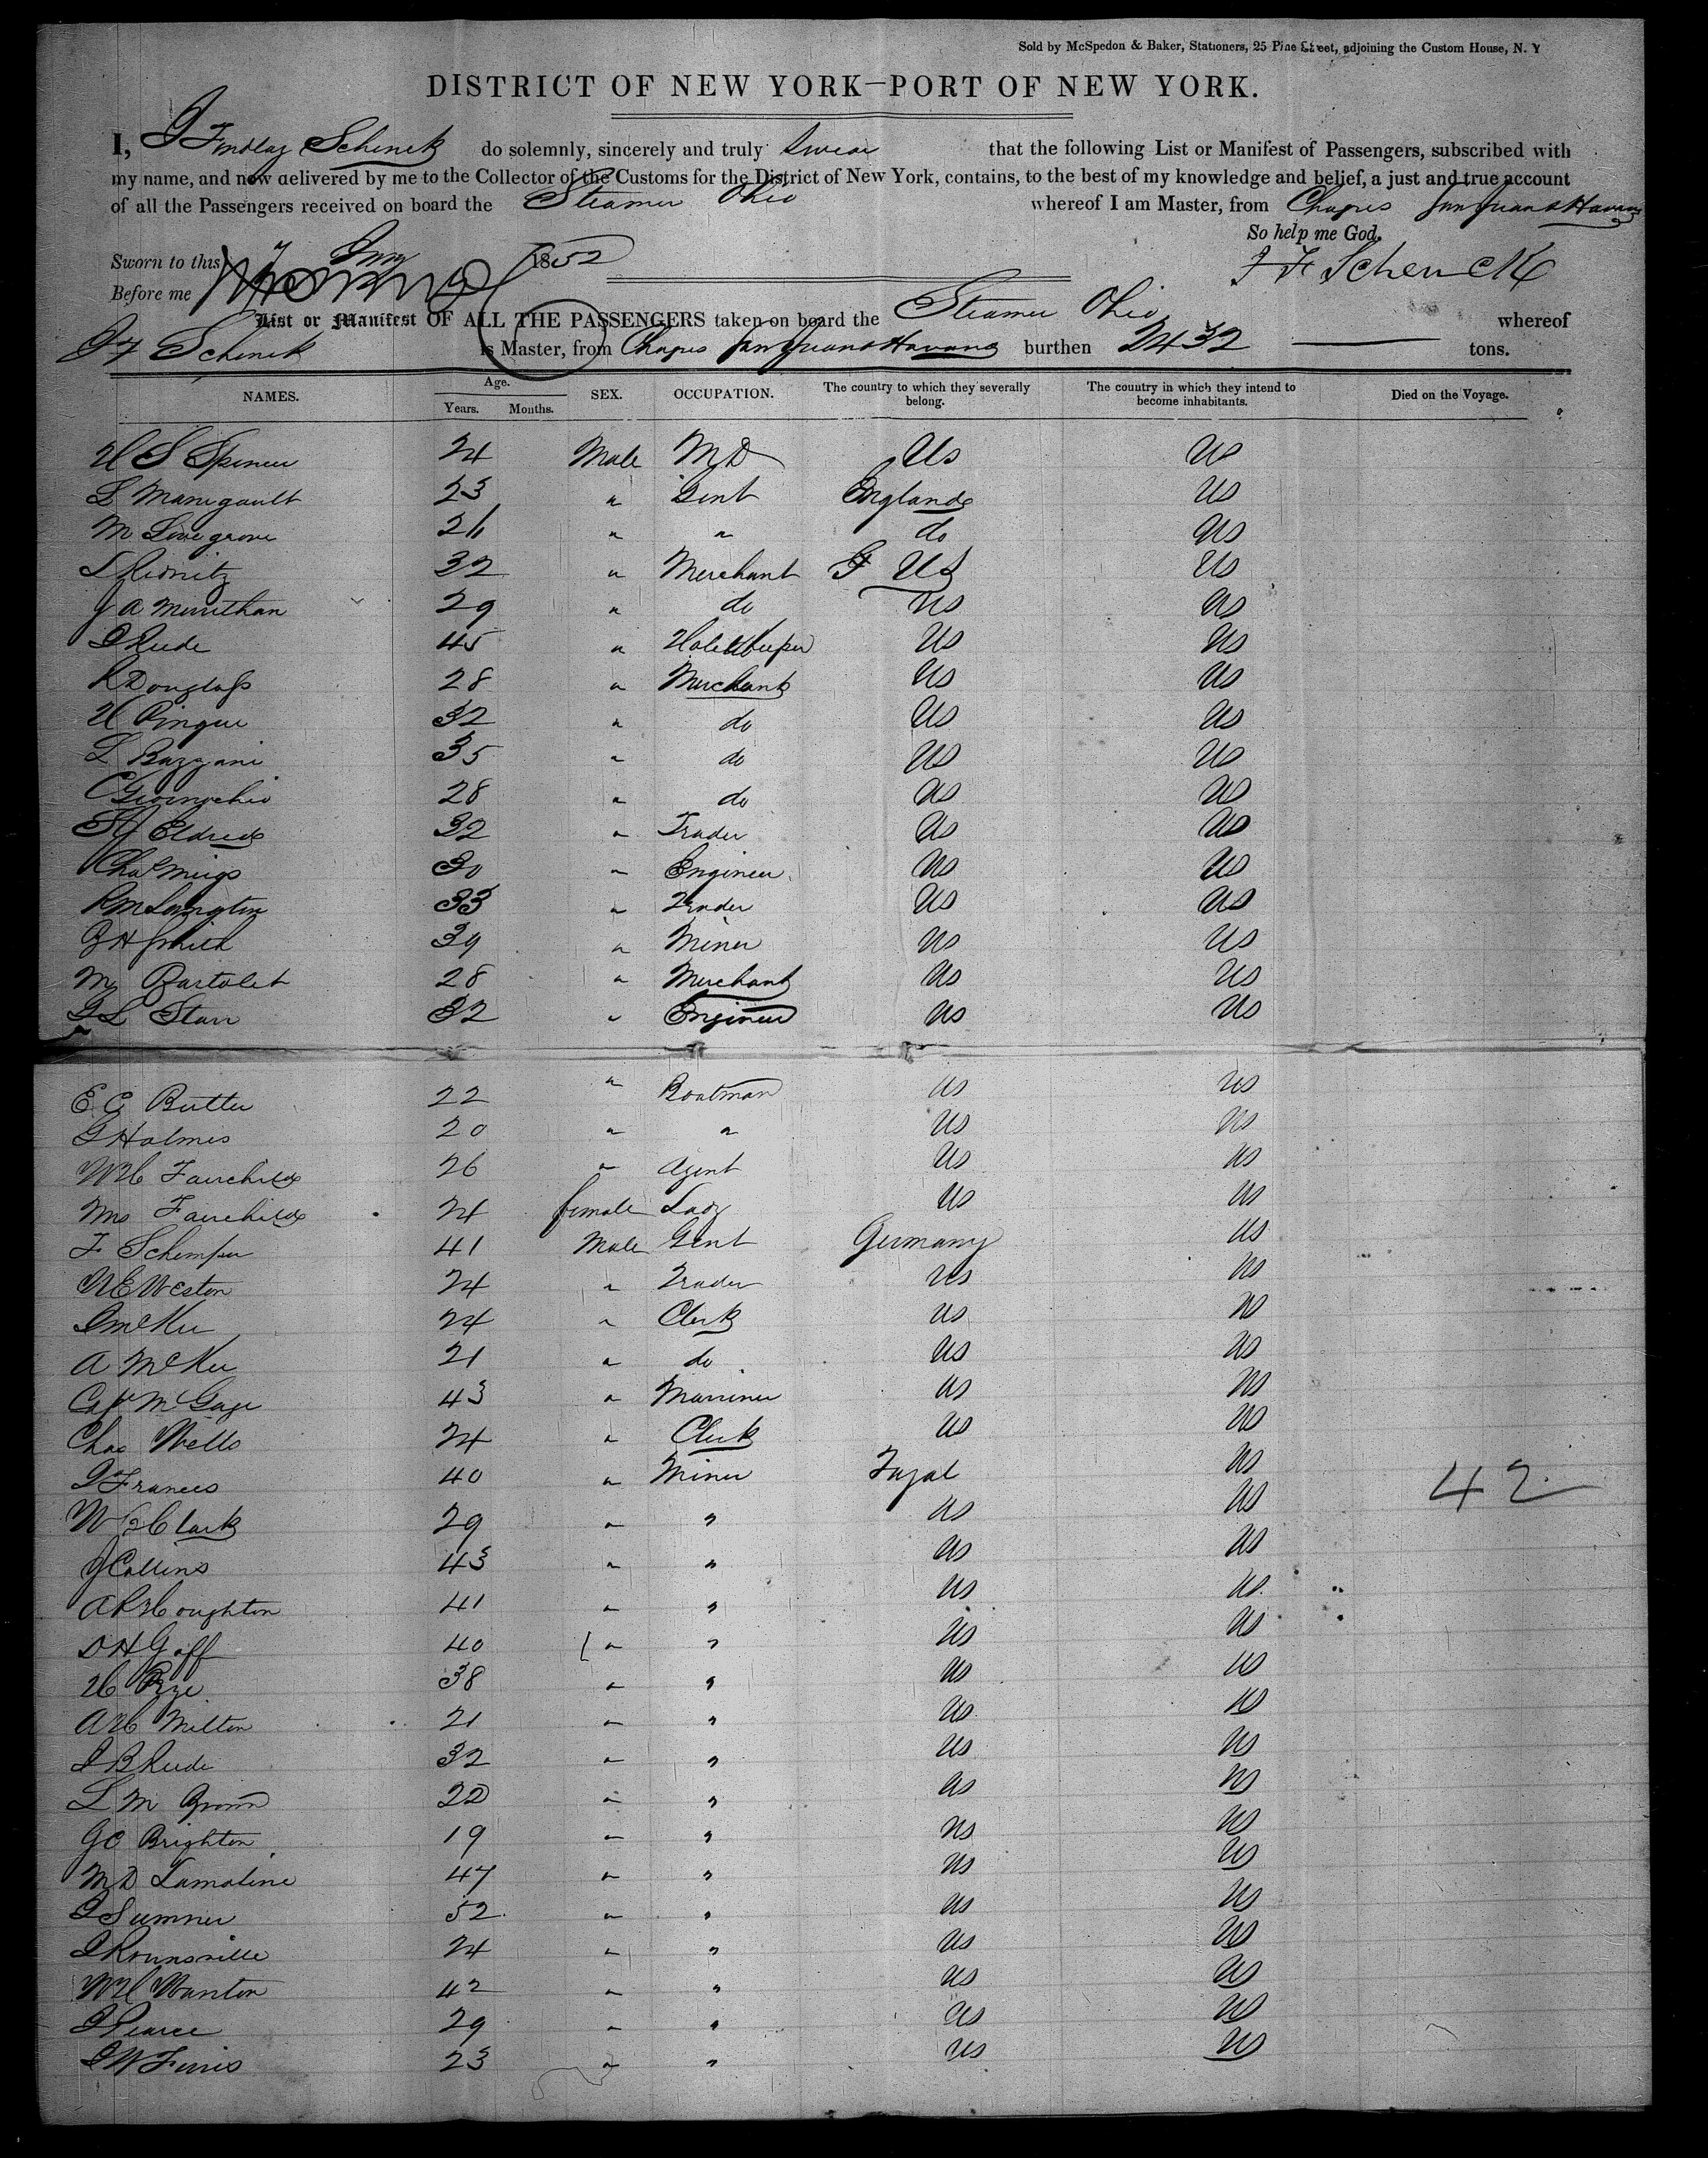 Sold by McSpedon & Baker, Stationers, 25 Pine Street, adjoining the Custom House, N. Y
DISTRICT OF NEW YORK—PORT OF NEW YORK.
I, J Findlay Schenck do solemnly, sincerely and truly Swear that the following List or Manifest of Passengers, subscribed with
my name, and now delivered by me to the Collector of the Customs for the District of New York, contains, to the best of my knowledge and belief, a just and true account
of all the Passengers received on board the Steamer Ohio whereof I am Master, from Chagres San Juan & Havana
So help me God.
Sworn to this 7 Jany 1852
J F Schenck
Before me
List or Manifest OF ALL THE PASSENGERS taken on board the Steamer Ohio whereof
J F Schenck is Master, from Chagres San Juan & Havana burthen 2432 tons.
NAMES. Age. Years. Months. SEX. OCCUPATION. The country to which they severally belong. The country in which they intend to become inhabitants. Died on the Voyage.
H S Spencer 24 Male MD US US
L Manigault 23 " Gent England US
M Lovegrove 26 " " do US
32 " Merchant US US
J A Merrithan 29 " do US US
J Rude 45 " Hotel Keeper US US
R Douglass 28 " Merchant US US
H Pingue 32 " do US US
L Bazzani 35 " do US US
28 " do US US
Eldred 32 " Trader US US
Chas Meigs 30 " Engineer US US
R M Livington 33 " Trader US US
H Smith 39 " Miner US US
M Bartolet 28 " Merchant US US
L Starr 32 " Engineer US US
E C Butler 22 " Boatman US US
G Holmes 20 " " US US
W H Fairchild 26 " Agent US US
Mrs Fairchild 24 female Lady US US
F Schemper 41 Male Gent Germany US
N E Weston 24 " Trader US US
J McKee 24 " Clerk US US
A McKee 21 " do US US
Capt M Gage 43 " Marriner US US
Chas Wells 24 " Clerk US US
J Frances 40 " Miner Fayal US
W Clark 29 " " US US
42
J Collins 43 " " US US
A R Houghton 41 " " US US
D H Goff 40 " " US US
H Pye 38 " " US US
A H Milton 21 " " US US
J B Rude 32 " " US US
L M Brown 22 " " US US
G C Brighton 19 " " US US
M D Lamoline 47 " " US US
J Sumner 52 " " US US
J Rounsville 24 " " US US
W H Wanton 42 " " US US
J Pearce 29 " " US US
J W Ferris 23 " " US US